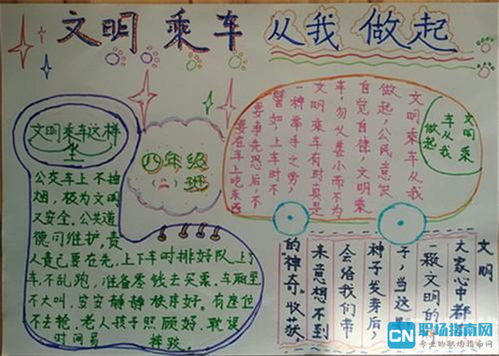 文明乘车 从我做起
文明乘车这样
坐
公交车上不抽
烟，极为文明
又安全，公共道
德可维护，责
人责己要在先，上下车时排好队，上了
车，不乱跑，准备零钱去买票，车厢里
不大叫，安安静静秩序好，有座位
不去抢，老人孩子照顾好，耽误
时间易
摔跤
八年级
（二）班
文明乘
车从我
做起
文明乘车从我
做起，公民意识
自觉自律，文明乘
车，勿以善小而不为
文明乘车有时真是
一种举手之劳，
譬如，上车时不
要争先恐后，不
要在车上吃东西
文明
大家心中都
一颗文明的
子，当这
种子发芽后，
会给我们带
来意想不到
的神奇。收获，
职场指南网
专业的职场指南网